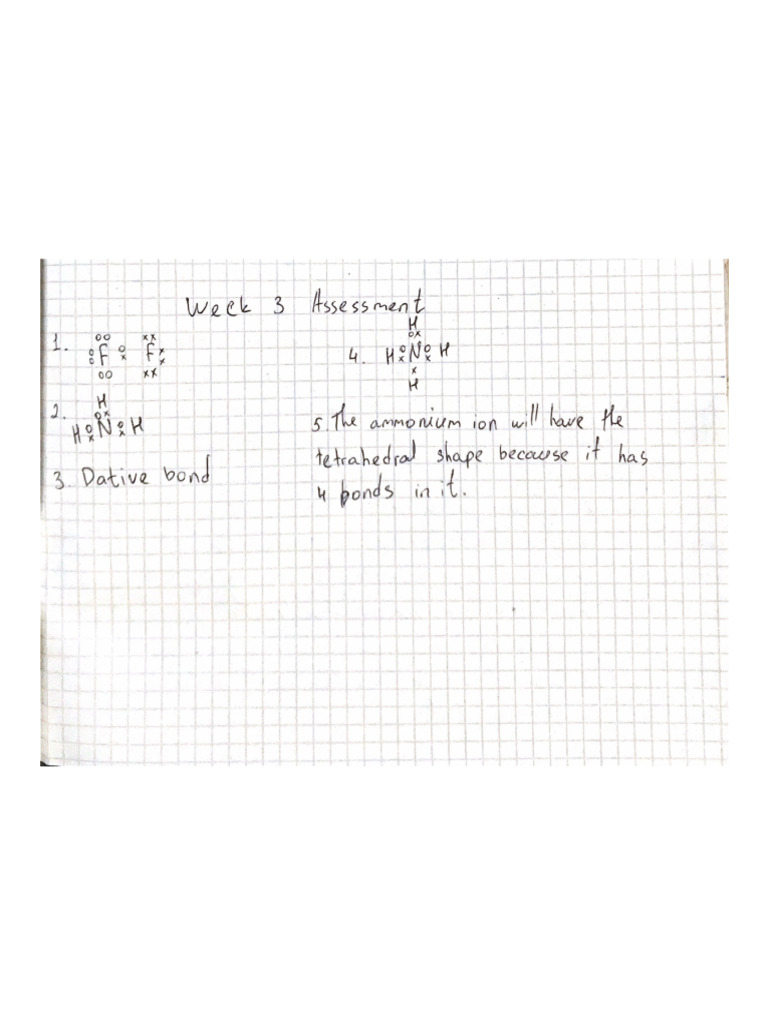 Week 3 Assessment
1. oo xx
o F o F x
o x x
oo xx
2. H
ox
H o N o H
x x
3. Dative bond
H
ox
4. H o N o H
x x
x
H
5. The ammonium ion will have the
tetrahedral shape because it has
4 bonds in it.